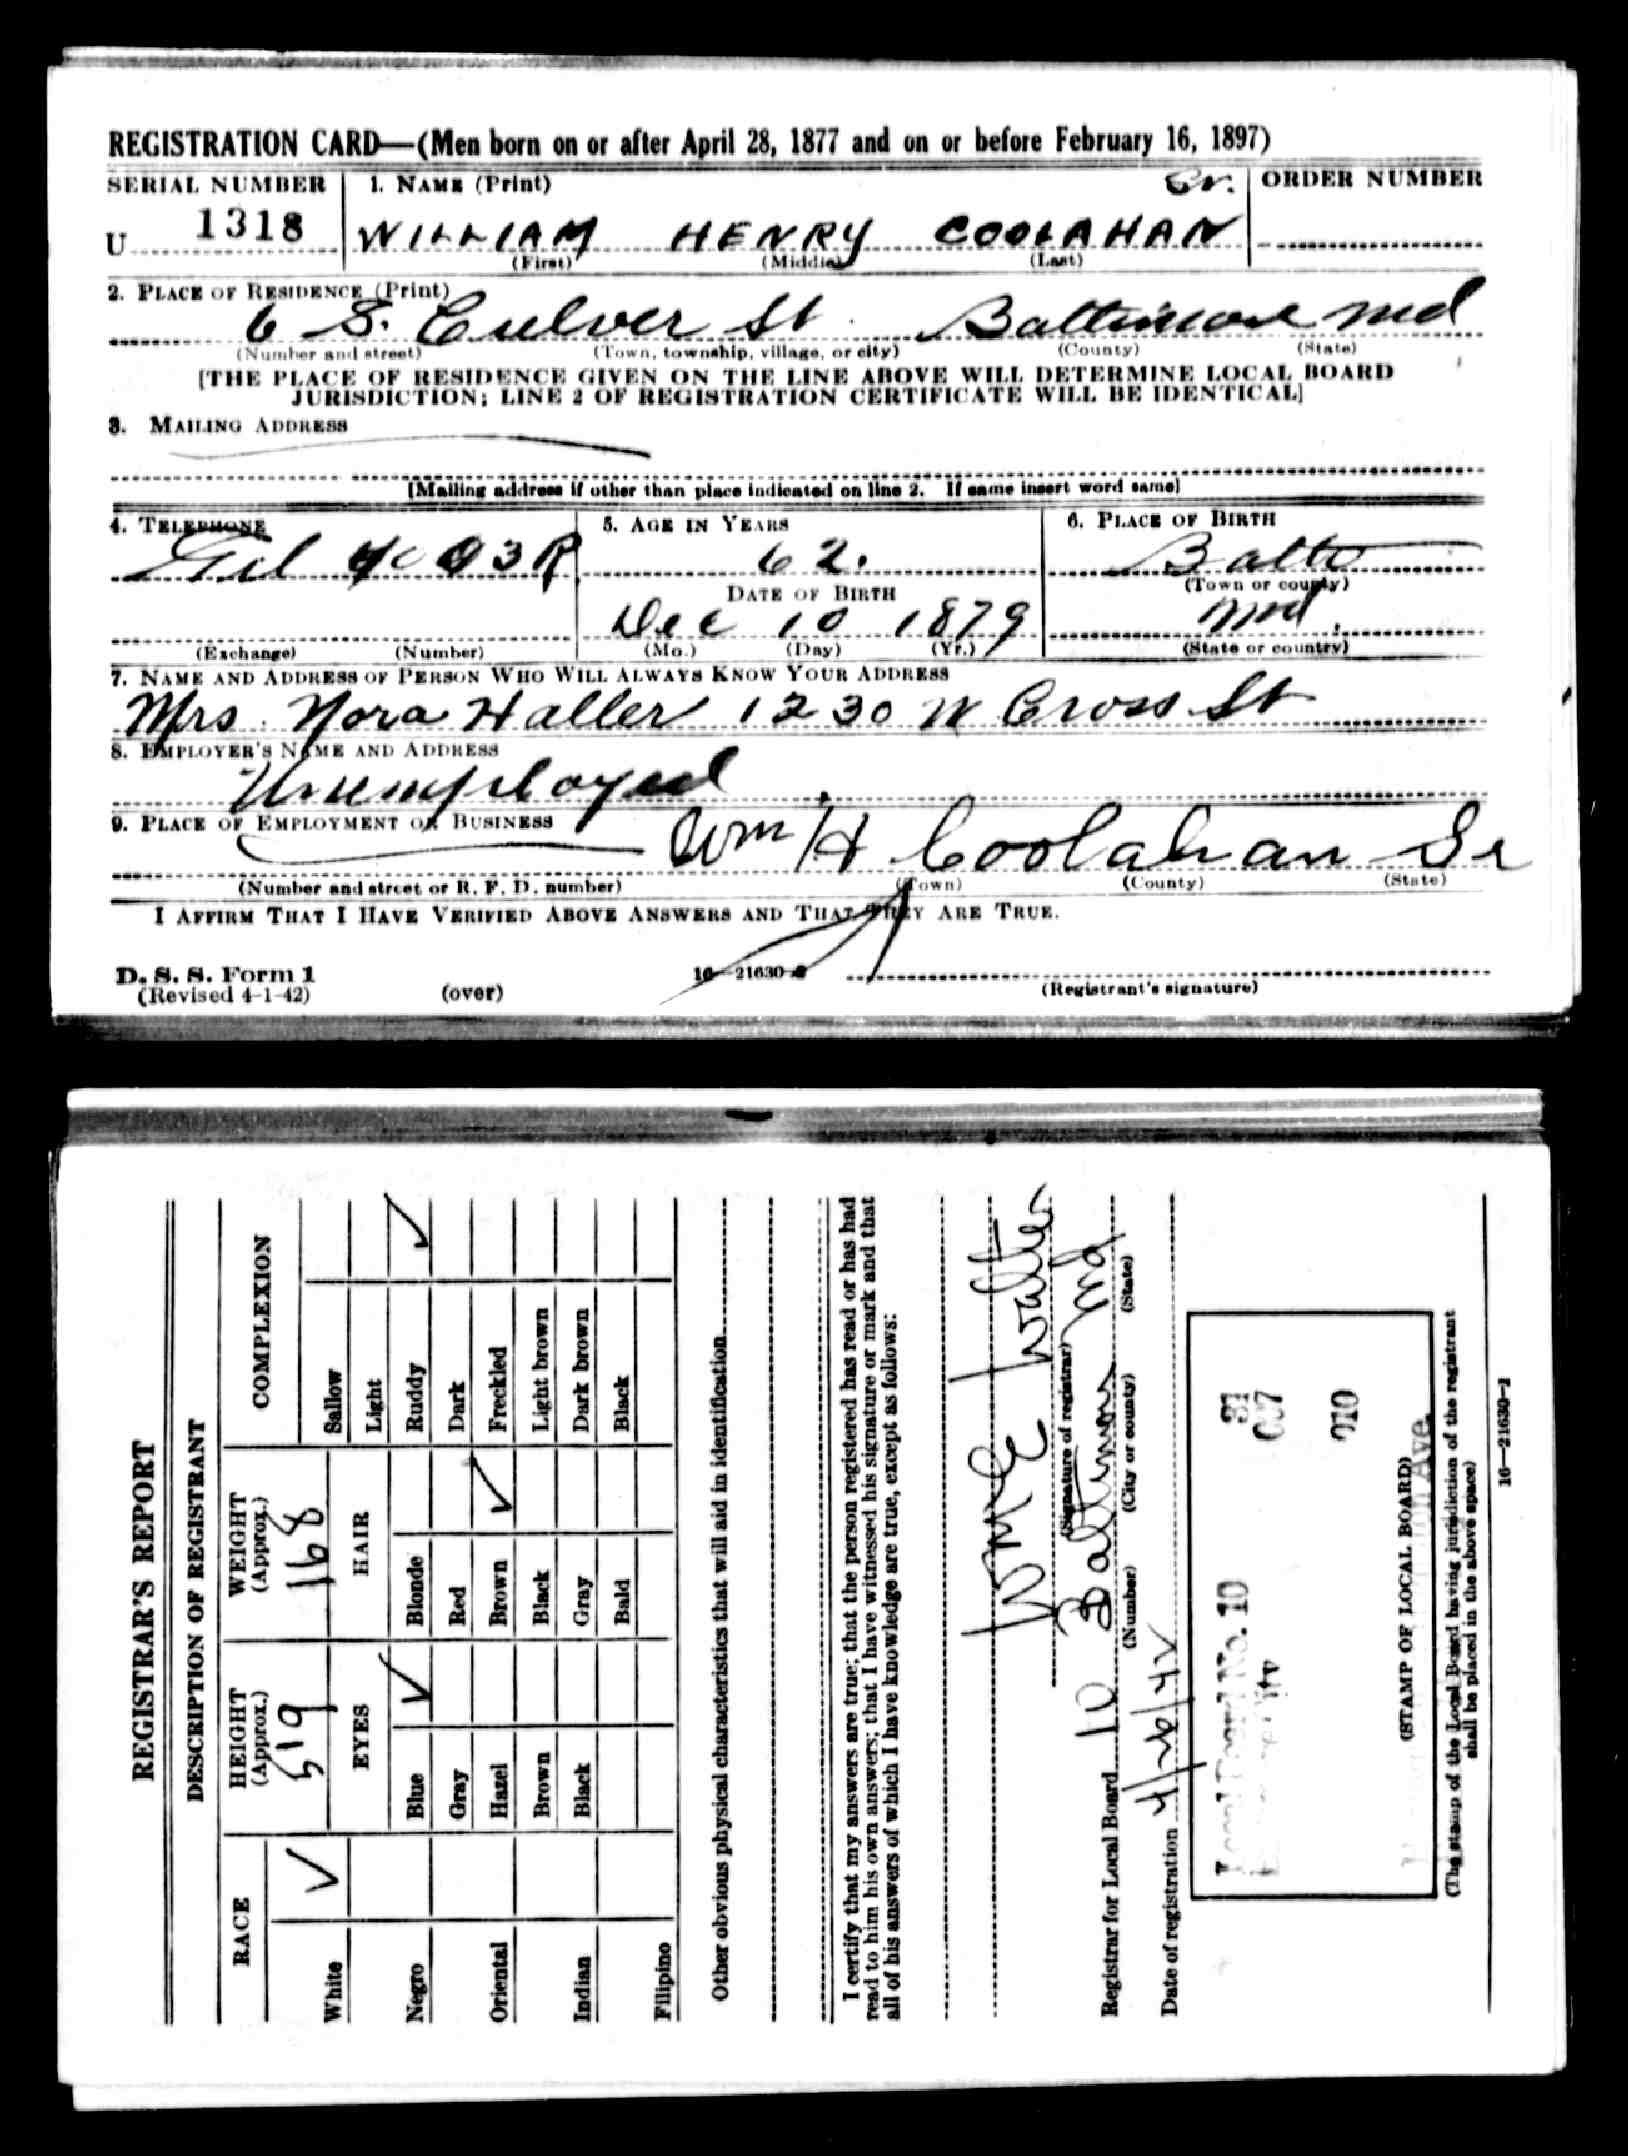 REGISTRATION CARD—(Men born on or after April 28, 1877 and on or before February 16, 1897)
SERIAL NUMBER 1. NAME (Print) Sr. ORDER NUMBER
U 1318 WILLIAM HENRY COOLAHAN
(First) (Middle) (Last)
2. PLACE OF RESIDENCE (Print)
6 S. Culver St Baltimore Md
(Number and street) (Town, township, village, or city) (County) (State)
[THE PLACE OF RESIDENCE GIVEN ON THE LINE ABOVE WILL DETERMINE LOCAL BOARD
JURISDICTION; LINE 2 OF REGISTRATION CERTIFICATE WILL BE IDENTICAL]
3. MAILING ADDRESS
[Mailing address if other than place indicated on line 2. If same insert word same]
4. TELEPHONE 5. AGE IN YEARS 6. PLACE OF BIRTH
Gil 62. Balto
(Town or county)
DATE OF BIRTH
Dec 10 1879 Md.
(Exchange) (Number) (Mo.) (Day) (Yr.) (State or country)
7. NAME AND ADDRESS OF PERSON WHO WILL ALWAYS KNOW YOUR ADDRESS
Mrs. Nora Haller 1230 W Cross St
8. EMPLOYER'S NAME AND ADDRESS
Unemployed
9. PLACE OF EMPLOYMENT OR BUSINESS
Wm H Coolahan Sr
(Number and street or R. F. D. number) (Town) (County) (State)
I AFFIRM THAT I HAVE VERIFIED ABOVE ANSWERS AND THAT THEY ARE TRUE.
D. S. S. Form 1 16—21630-2
(Revised 4-1-42) (over) (Registrant's signature)
REGISTRAR'S REPORT
DESCRIPTION OF REGISTRANT
RACE HEIGHT (Approx.) WEIGHT (Approx.) COMPLEXION
5'9 168
White ✓ EYES HAIR Sallow
Light
Negro Blue ✓ Blonde Ruddy ✓
Gray Red Dark
Oriental Hazel Brown ✓ Freckled
Brown Black Light brown
Indian Black Gray Dark brown
Bald Black
Filipino
Other obvious physical characteristics that will aid in identification
I certify that my answers are true; that the person registered has read or has had
read to him his own answers; that I have witnessed his signature or mark and that
all of his answers of which I have knowledge are true, except as follows:
Walter
(Signature of registrar)
Registrar for Local Board 10 Baltimore Md
(Number) (City or county) (State)
Date of registration 4/26/42
Local Board No. 10 31
City 007
010
Ave.
(STAMP OF LOCAL BOARD)
(The stamp of the Local Board having jurisdiction of the registrant
shall be placed in the above space)
16—21630-2